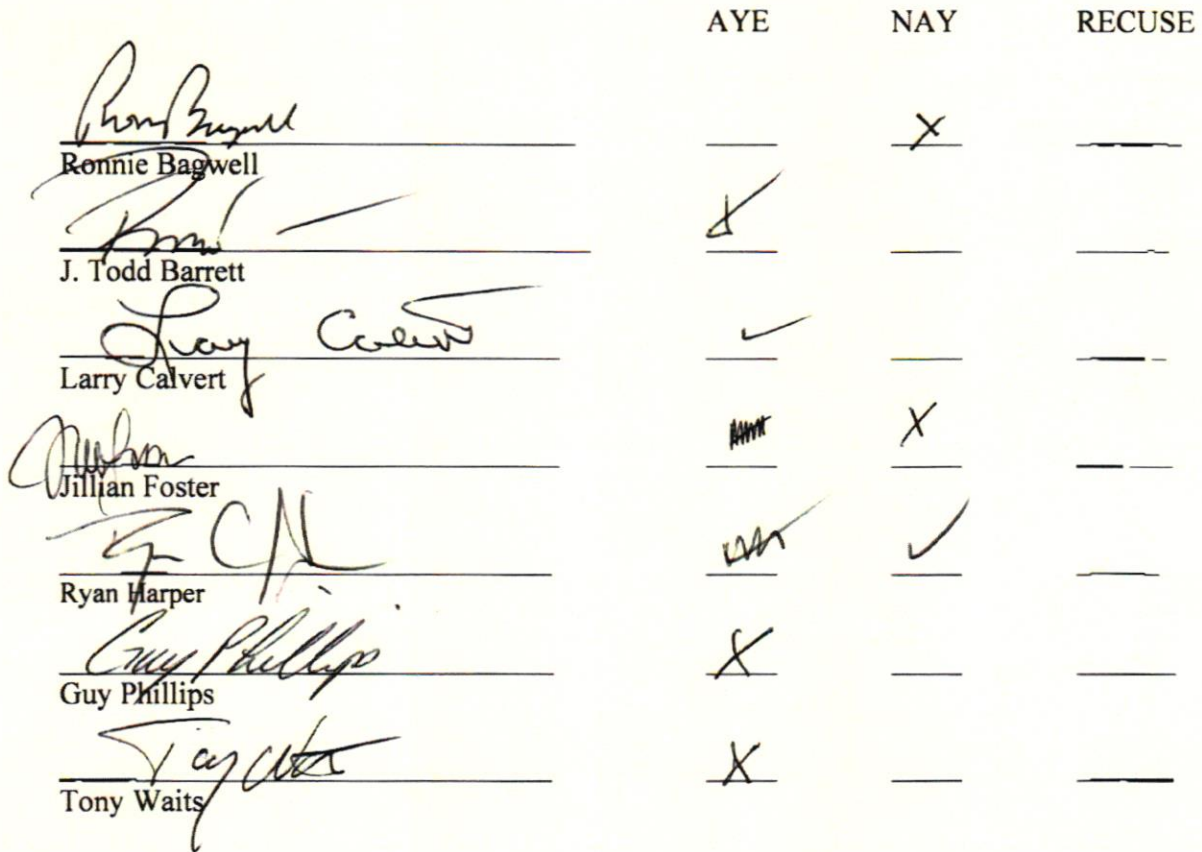 AYE NAY RECUSE
Ronnie Bagwell X
J. Todd Barrett X
Larry Calvert ✓
Jillian Foster X
Ryan Harper ✓
Guy Phillips
Guy Phillips X
Tony Waits X